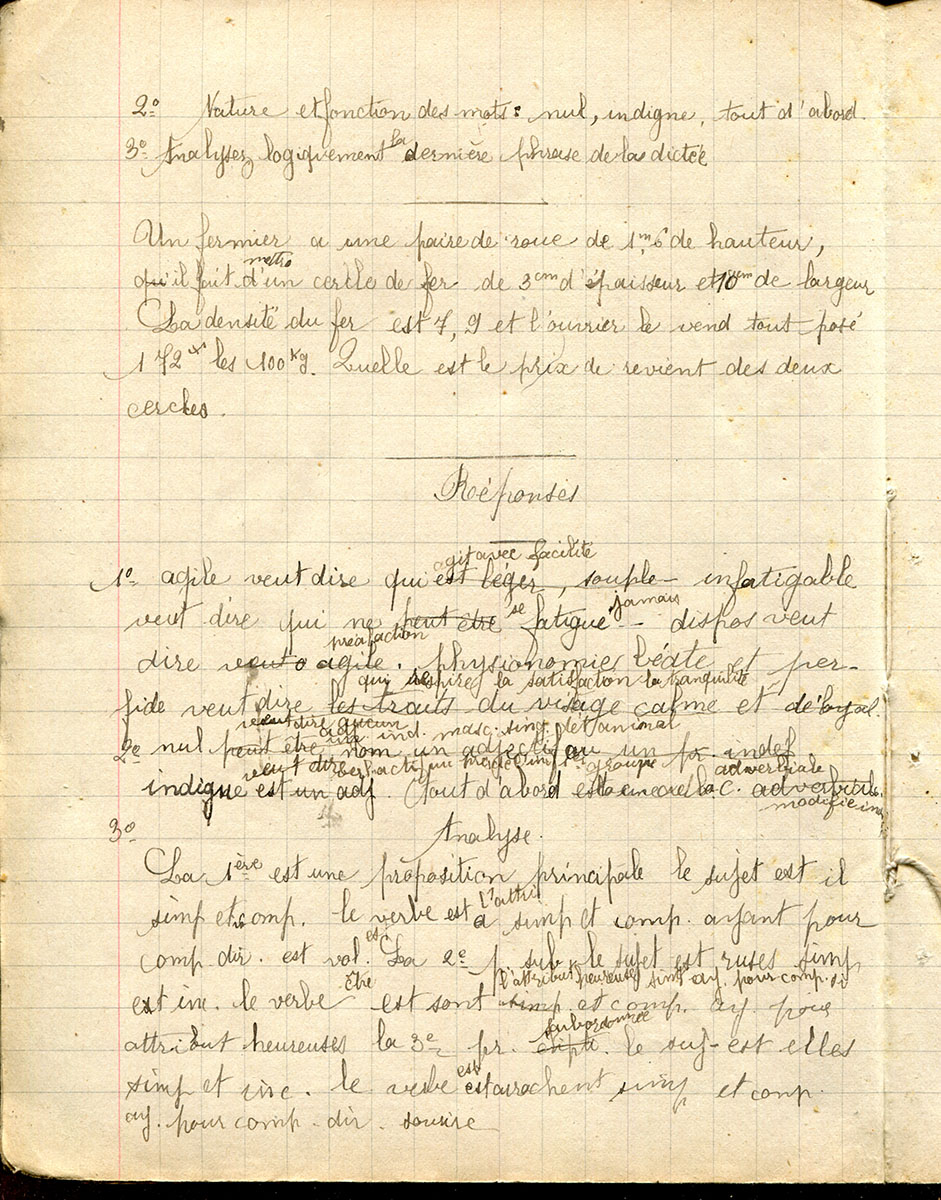 2º Nature et fonction des mots: nul, indigne, tout d'abord.
3º Analysez logiquement la dernière phrase de la dictée
Un fermier a une paire de roue de 1m,6 de hauteur,
qu'il fait
metre
d'un cercle de fer de 3cm d'épaisseur et 10cm de largeur
La densité du fer est 7,9 et l'ouvrier le vend tout posé
172 les 100Kg. Quelle est le prix de revient des deux
cercles.
Réponses
agit avec facilité
1º agile veut dire qui est léger, souple – infatigable
se jamais
veut dire qui ne peut être fatigue – dispos veut
action
dire agile. physionomies béate et per-
qui respire la satisfaction la tranquilité
fide veut dire les traits du visage calme et déloyal.
veut dire aucun
adj. ind. masc. sing. det animal
2º nul peut être nom un adjectif ou un pr. indef.
veut dire
groupe adverbiale
indigne est un adj. tout d'abord est la C. adverbiale.
modifie
3º Analyse.
La 1ère est une proposition principale le sujet est il
l'attri
simp et comp. le verbe est a simp et comp. ayant pour
est
comp dir. est val. La 2e p. sub. le sujet est ruses simp
être l'attribut heureuses simp ay. pour comp.
et inc. le verbe est sont simp et comp. ay. pour
subordonnée
attribut heureuses la 3e pr. le suj- est elles
est
simp et inc. le verbe est arrachent simp et comp.
ay. pour comp. dir. sourire